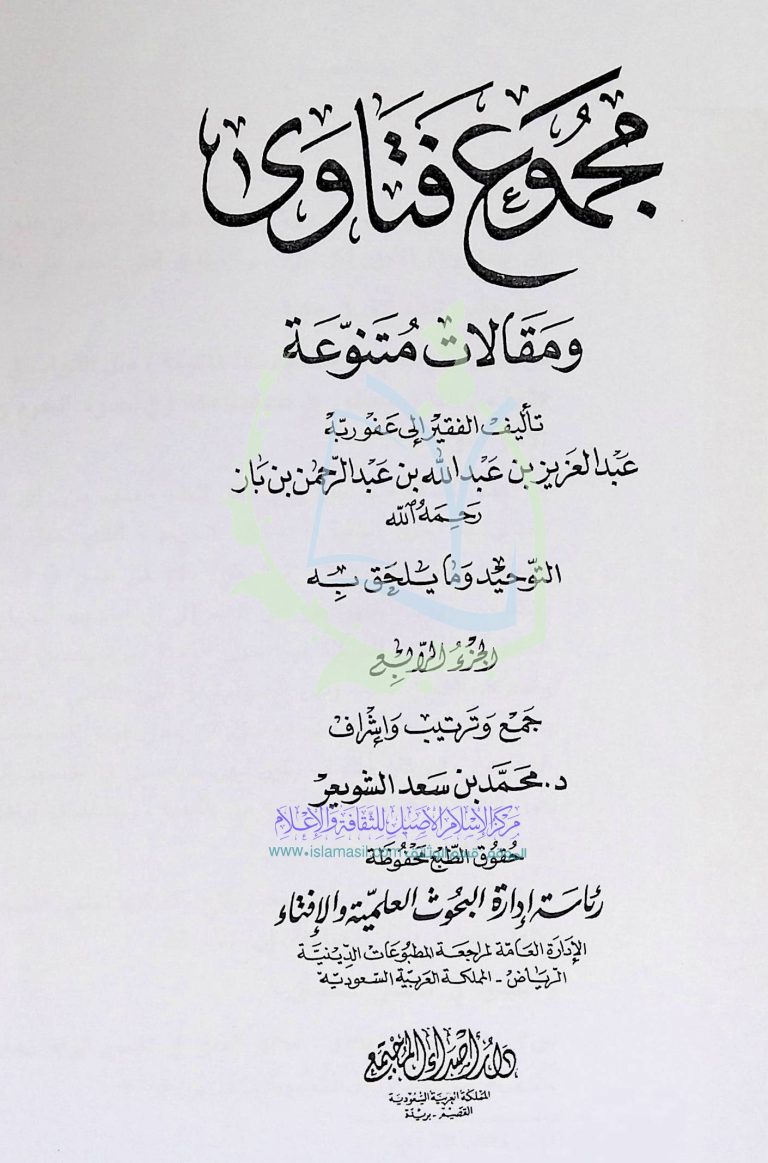 مجموع فتاوى
ومقالات متنوعة
تأليف الفقير إلى عفو ربه
عبد العزيز بن عبد الله بن عبد الرحمن بن باز
رحمه الله
التوحيد وما يلحق به
الجزء الرابع
جمع وترتيب وإشراف
د. محمد بن سعد الشويعر
مركز الإسلام الأصيل للثقافة والإعلام
www.islamasil.com
حقوق الطبع محفوظة
رئاسة إدارة البحوث العلمية والإفتاء
الإدارة العامة لمراجعة المطبوعات الدينية
الرياض - المملكة العربية السعودية
دار أصداء المجتمع
المملكة العربية السعودية
القصيم - بريدة